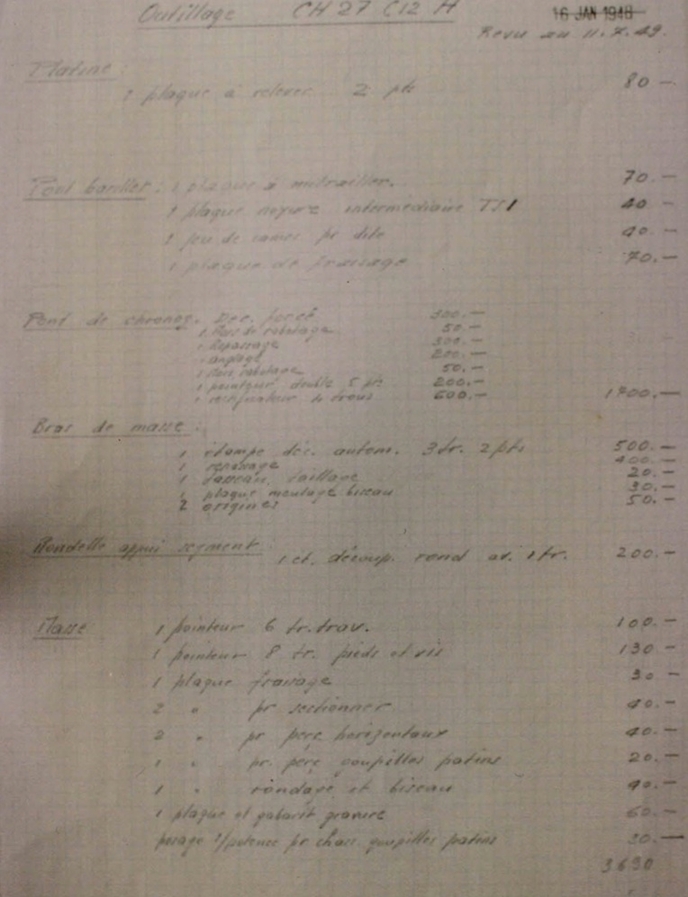 Outillage CH 27 C12 A
16 JAN 1948
Revu au 11.7.49.
Platine:
1 plaque à relever 2 pts 80 —
Pont barillet: 1 plaque à mitrailler. 70.—
1 plaque noyure intermédiaire TS1 40 —
1 jeu de cames pr dite 40.—
1 plaque de fraisage 70.—
Pont de chronog. Déc. forcé 300.—
1 rabotage 50.—
1 Repassage 300.—
200.—
1 rabotage 50.—
1 pointeur double 5 pts 200.—
1 rectificateur 4 trous 600.— 1700.—
Bras de masse:
1 étampe déc. autom. 3 tr. 2 pts 500.—
1 repassage 400.—
1 taillage 20.—
1 plaque meulage biseau 30.—
2 origines 50.—
Rondelle appui segment:
1 et. découp. rond av. 1 tr. 200.—
Masse 1 pointeur 6 tr. trav. 100.—
1 pointeur 8 tr. pieds et vis 130 —
1 plaque fraisage 30 —
2 " pr sectionner 40.—
2 " pr perç horizontaux 40.—
1 " pr. perç goupilles patins 20.—
1 " rondage et biseau 40.—
1 plaque et gabarit gravure 60.—
posage s/potence pr chass. goupilles patins 30.—
3630